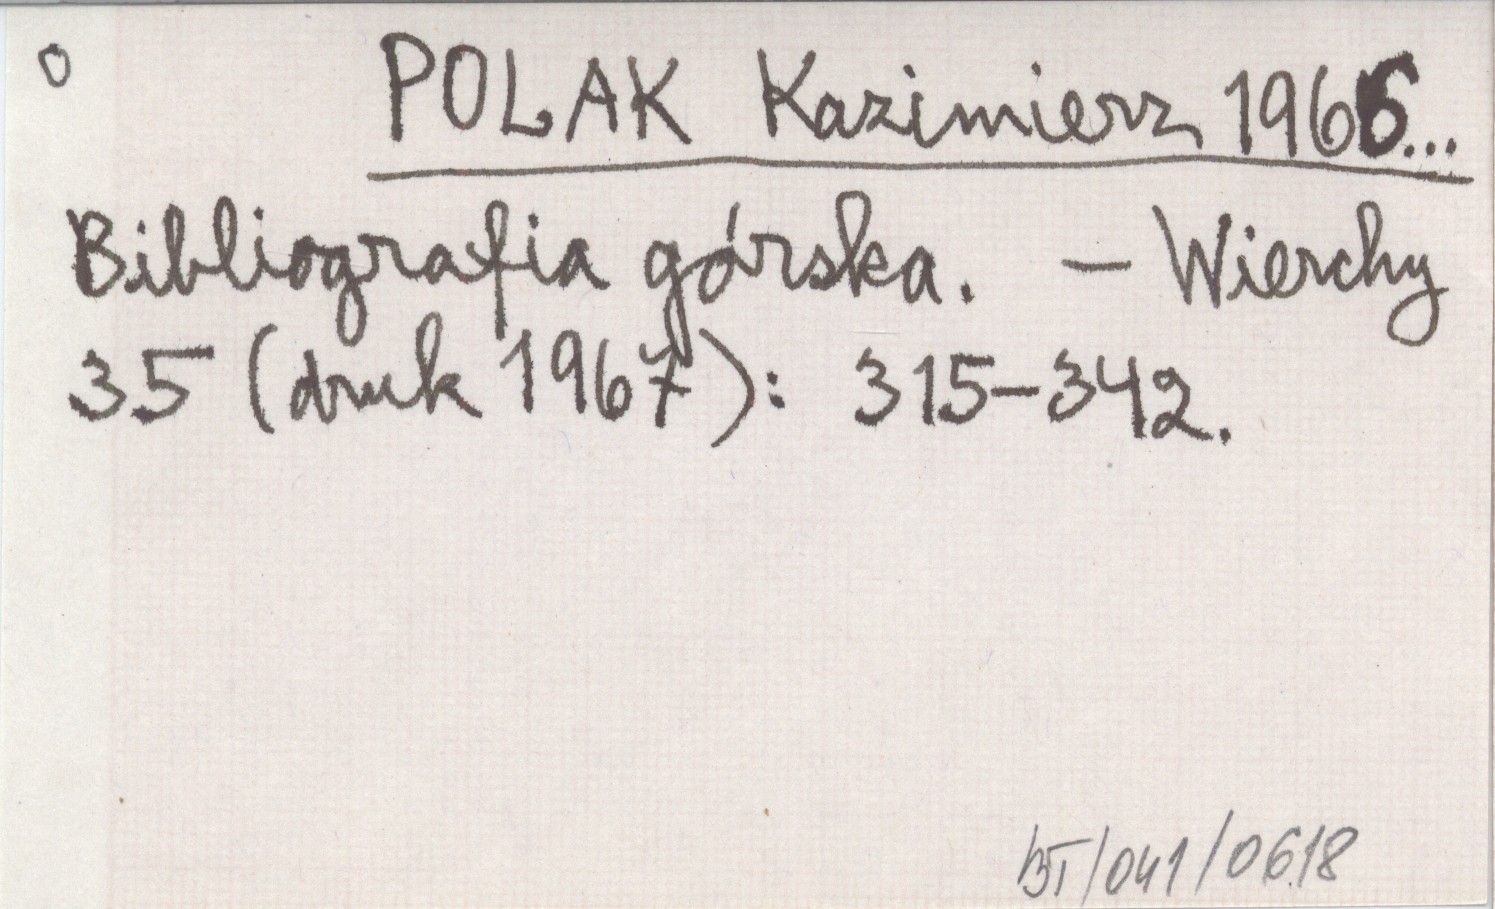 0 POLAK Kazimierz 1966...
Bibliografia górska. – Wierchy
35 (druk 1967): 315–342.
BT/041/0618